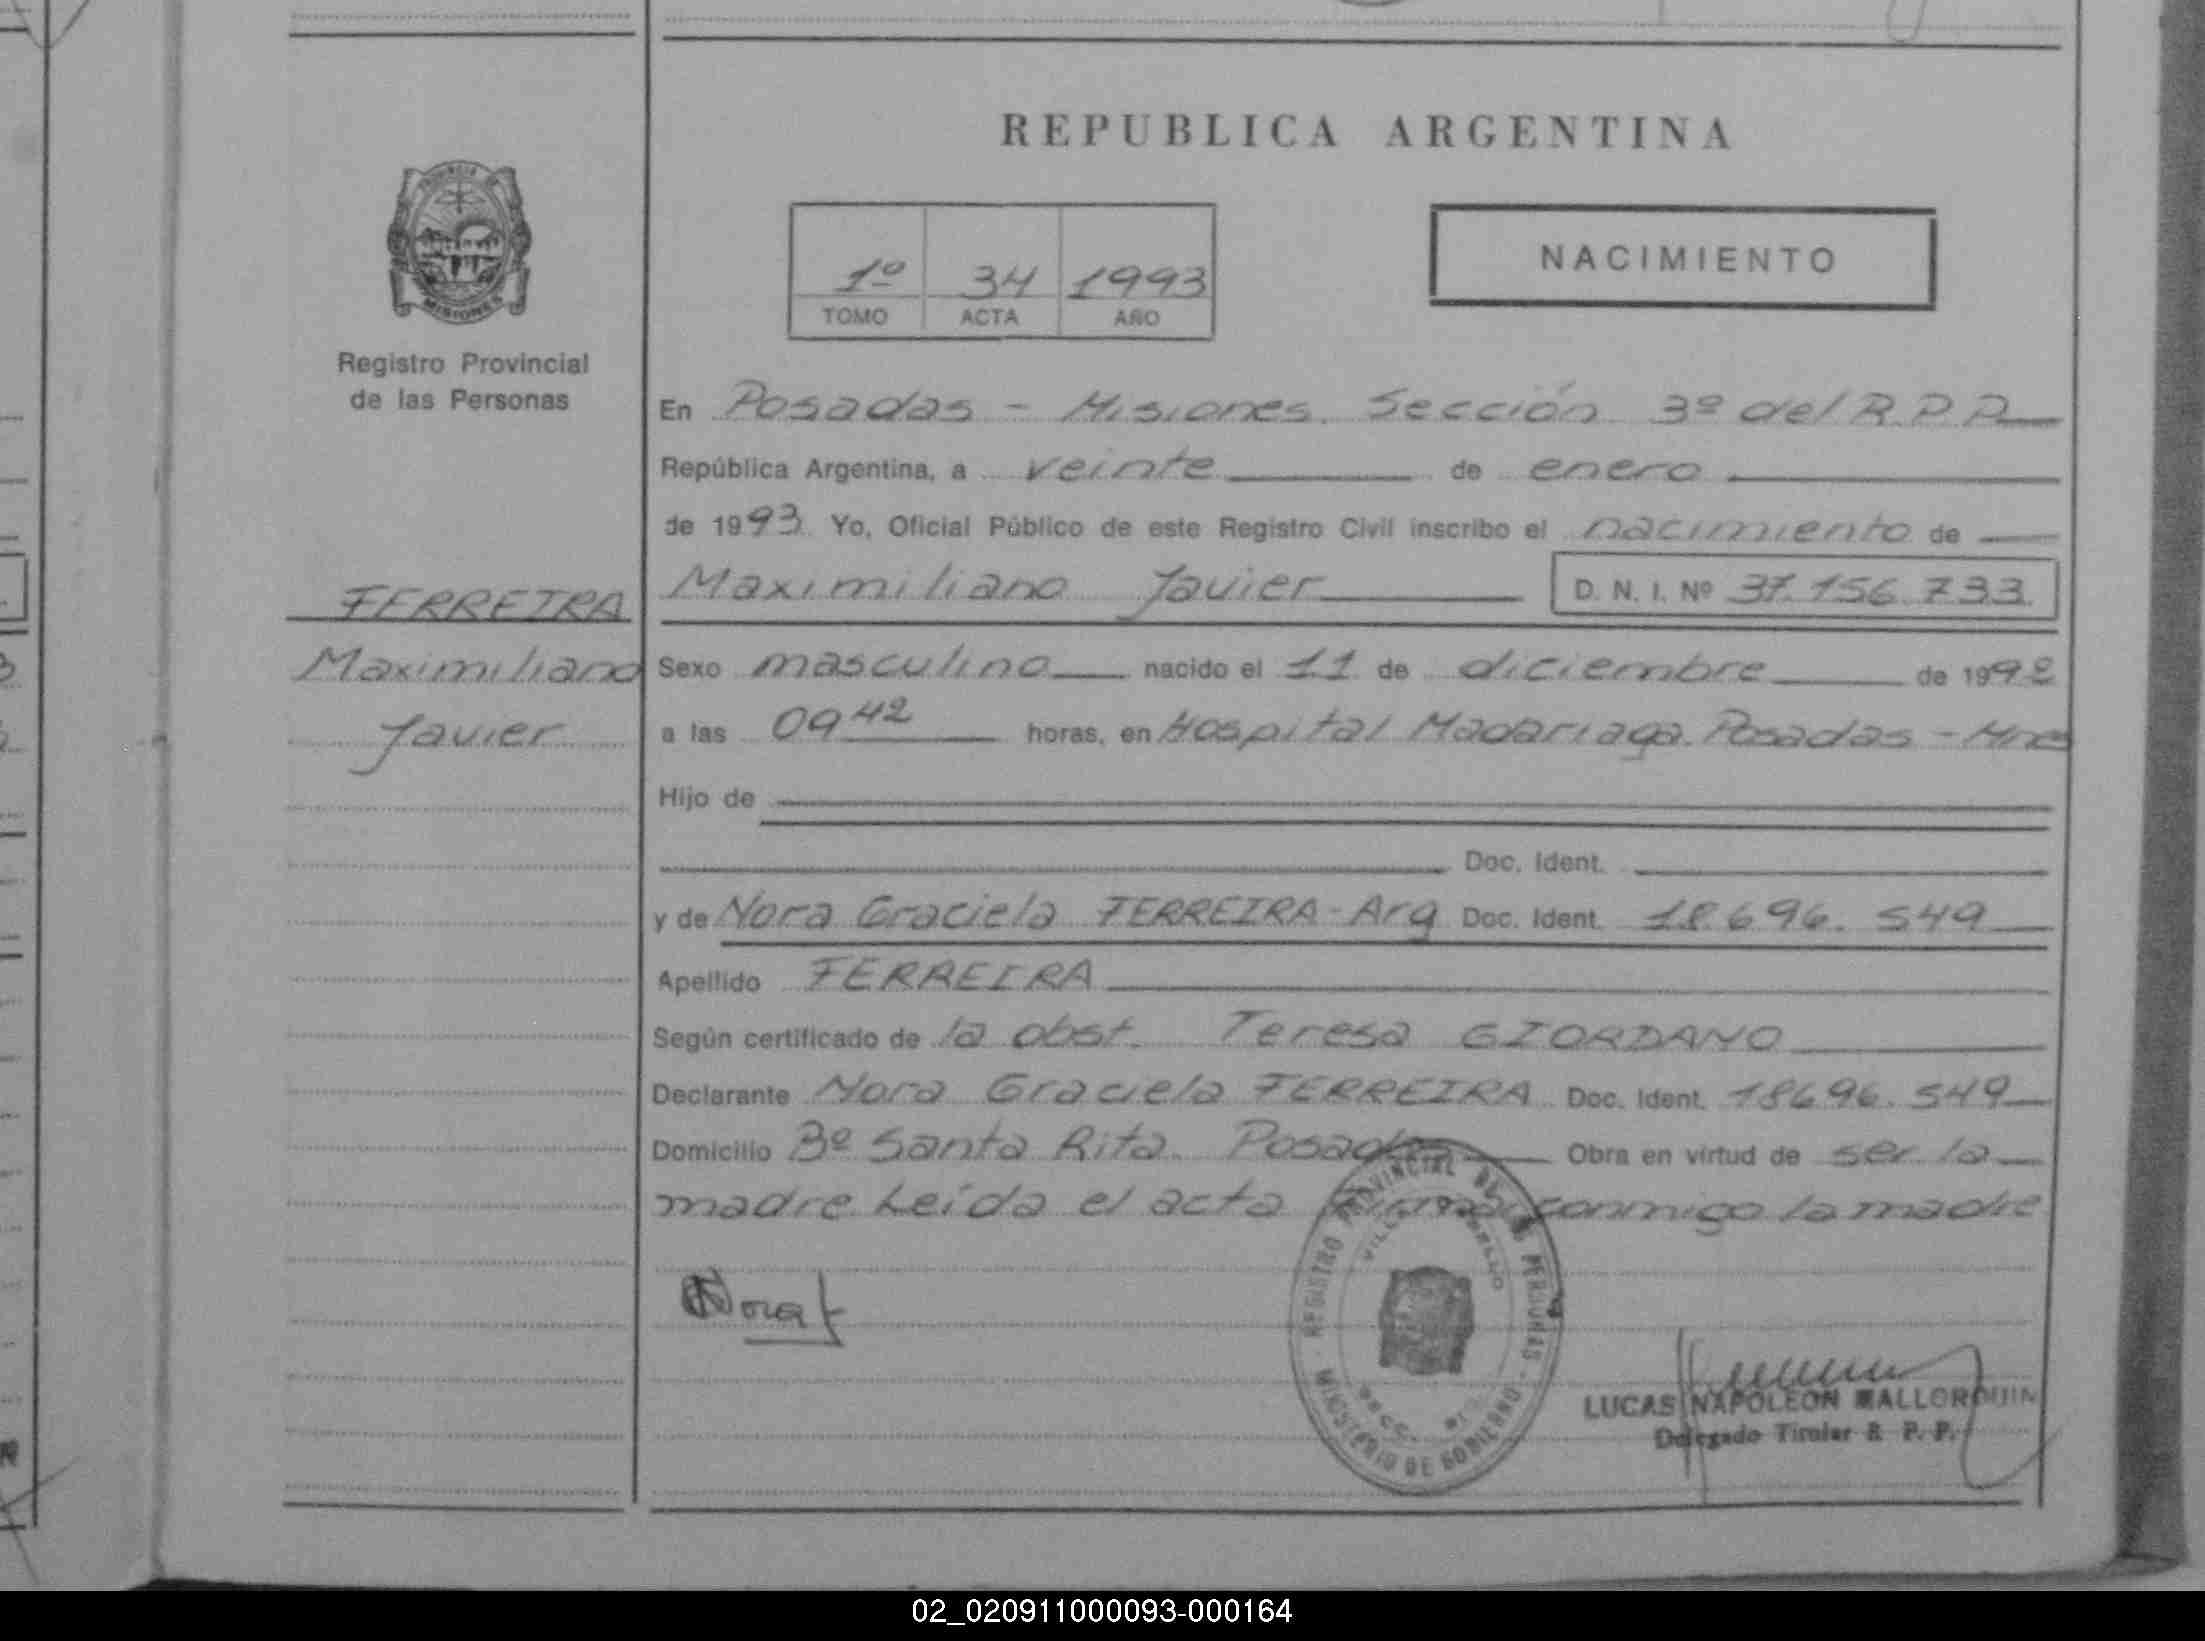 REPUBLICA ARGENTINA
PROVINCIA DE
MISIONES
Registro Provincial
de las Personas
1º 34 1993
TOMO ACTA AÑO
NACIMIENTO
En Posadas - Misiones. Sección 3º del R.P.P.
República Argentina, a veinte de enero
de 1993. Yo, Oficial Público de este Registro Civil inscribo el nacimiento de
Maximiliano Javier D. N. I. Nº 37.156.733
FERREIRA
Maximiliano
Javier
Sexo masculino nacido el 11 de diciembre de 1992
a las 09 42 horas, en Hospital Madariaga. Posadas - Mnes
Hijo de
Doc. Ident.
y de Nora Graciela FERREIRA - Arg Doc. Ident. 18.696.549
Apellido FERREIRA
Según certificado de la obst. Teresa GIORDANO
Declarante Nora Graciela FERREIRA Doc. Ident. 18696.549
Domicilio Bº Santa Rita. Posadas Obra en virtud de ser la
madre Leída el acta firma conmigo la madre
Nora f
REGISTRO PROVINCIAL DE LAS PERSONAS
MINISTERIO DE GOBIERNO
LUCAS NAPOLEON MALLORQUIN
Delegado Titular R. P. P.
02_020911000093-000164